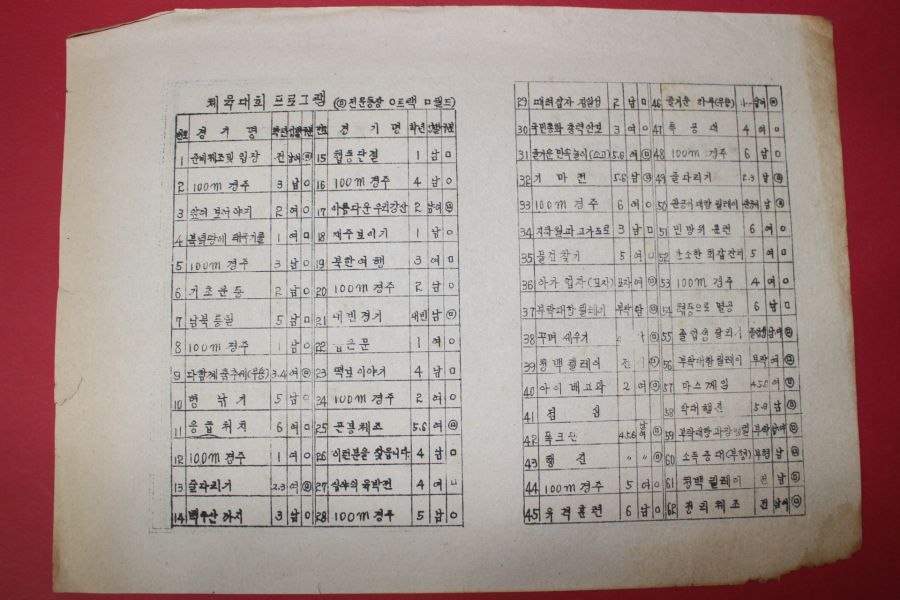 체육대회 프로그램 (ⓜ전운동장 ○트랙 ㅁ필드)
번호 경기명 학년 성별 구분 번호 경기명 학년 성별 구분
1 준비체조및 입장 전 남여
15 협동단결 1 남 ㅁ
2 100m 경주 3 남 ○
16 100m 경주 4 남 ○
3 2 여 ○
17 아름다운 우리강산 2 남여
4 북녘땅에 태극기를 1 여 ㅁ
18 재주보이기 1 남 ○
5 100m 경주 3 남 ○
19 북한여행 3 여 ㅁ
6 기초운동 2 남 ○
20 100m 경주 2 남 ○
7 남북통일 5 남 ㅁ
21 내빈경기 내빈 남
8 100m 경주 1 남 ○
22 문 1 여 ○
9 다함께 춤추며(무용) 3.4 여
23 떡보이야기 4 남 ㅁ
10 병 낚기 5 남 ○
24 100m 경주 2 여 ○
11 응급처치 6 여 ㅁ
25 곤봉체조 5.6 여
12 100m 경주 1 여 ○
26 이런분을 찾읍니다 4 남 ㅁ
13 줄다리기 2.3 여
27 4 여 ㅁ
14 백두산 까지 3 남 ○
28 100m 경주 5 남 ○
29 때려잡자 김일성 2 남 ㅁ
46 즐거운 하루(무용) 남여
30 국민총화 총력안보 3 여 ○
47 투공대 4 여 ○
31 즐거운 민속놀이(소고) 5.6 여
48 100m 경주 6 남 ○
32 기마전 5.6 남
49 줄다리기 2.3 남
33 100m 경주 6 여 ○
50 관공서대항 릴레이 관공서 남
34 지하철과 고가도로 3 남 ㅁ
51 민방위 훈련 6 여 ○
35 물건찾기 5 여 ○
52 간소한 회갑잔치 5 여 ○
36 (모자) 모자 여
53 100m 경주 4 여 ○
37 부락대항 릴레이 부락 남
54 협동으로 멸공 6 남 ㅁ
38 세우기
55 졸업생 달리기 졸업생 남여
39 청백릴레이 전
56 부락대항 릴레이 부락 여
40 아이 배고파 2 여
57 마스게임 4.5.6 여
41 점심
58 악대행진 5.6 남
42 포크댄 4.5.6 남여
59 부락대항 부락 남여
43 행진 〃 〃
60 소득증대(부형) 부형 남
44 100m 경주 5 여 ○
61 청백릴레이 전 남
45 유격훈련 6 남 ○
62 정리체조 전 남여